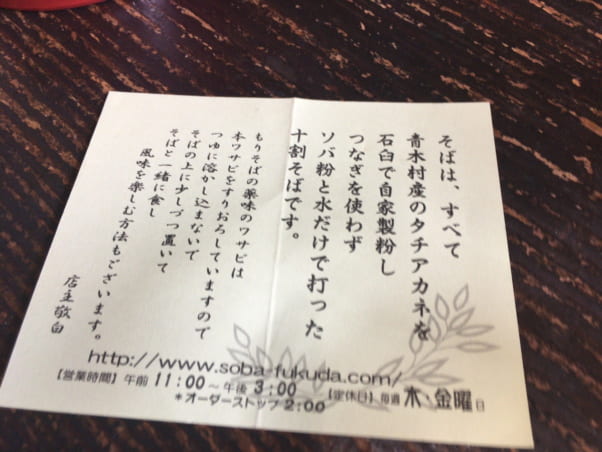 そばは、すべて
青木村産のタチアカネを
石臼で自家製粉し
つなぎを使わず
ソバ粉と水だけで打った
十割そばです。
もりそばの薬味のワサビは
本ワサビをすりおろしていますので
つゆに溶かし込まないで
そばの上に少しづつ置いて
そばと一緒に食し
風味を楽しむ方法もございます。
店主敬白
http://www.soba-fukuda.com/
【営業時間】午前11:00～午後3:00 【定休日】毎週木・金曜日
*オーダーストップ2:00